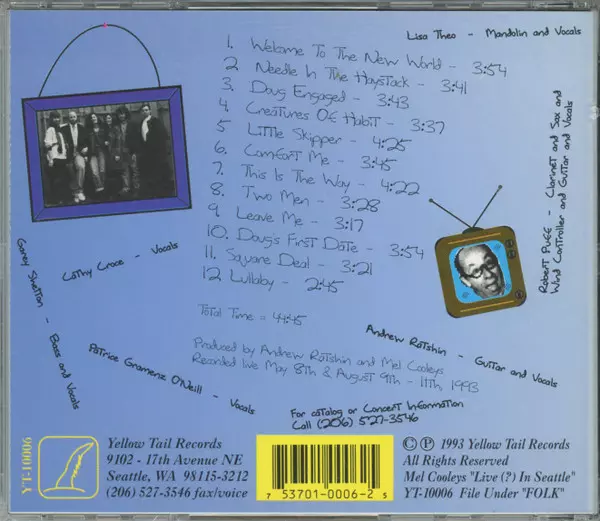 Lisa Theo - Mandolin and Vocals
1. Welcome To The New World - 3:54
2. Needle In The Haystack - 3:41
3. Doug Engaged - 3:43
4. Creatures Of Habit - 3:37
5. Little Skipper - 4:25
6. Comfort Me - 3:45
7. This Is The Way - 4:22
8. Two Men - 3:28
9. Leave Me - 3:17
10. Doug's First Date - 3:54
11. Square Deal - 3:21
12. Lullaby - 2:45
Total Time = 44:45
Robert Puff - Clarinet and Sax and
Wind Controller and Guitar and Vocals
Cathy Croce - Vocals
Garey Shelton - Bass and Vocals
Patrice Gramenz O'Neill - Vocals
Andrew Ratshin - Guitar and Vocals
Produced by Andrew Ratshin and Mel Cooleys
Recorded live May 8th & August 9th - 11th 1993
For catalog or Concert Information
Call (206) 527-3546
YT-10006
Yellow Tail Records
9102 - 17th Avenue NE
Seattle, WA 98115-3212
(206) 527-3546 fax/voice
7 53701-0006-2 5
© ℗ 1993 Yellow Tail Records
All Rights Reserved
Mel Cooleys "Live (?) In Seattle"
YT-10006 File Under "FOLK"